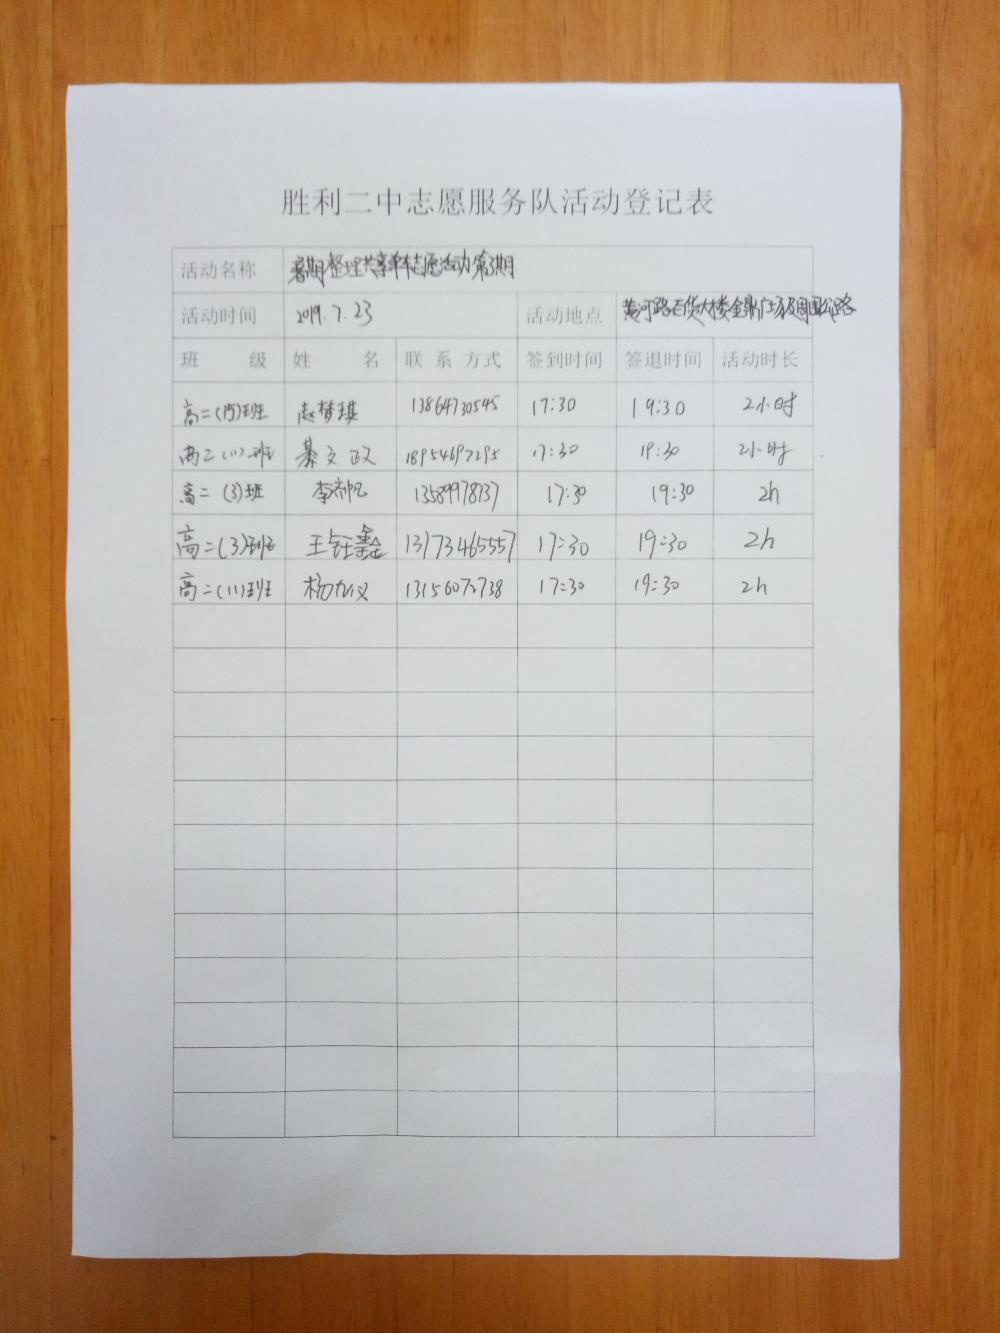 胜利二中志愿服务队活动登记表
活动名称 暑期整理共享单车志愿活动第3期
活动时间 2019.7.23 活动地点 黄河路百货大楼金鼎广场及周围公路
班 级 姓 名 联系方式 签到时间 签退时间 活动时长
高二(15)班 赵梦琪 13864730545 17:30 19:30 2小时
高二(11)班 綦文政 18954697295 17:30 19:30 2小时
高二(3)班 李沛帆 13589978737 17:30 19:30 2h
高二(3)班 王钰鑫 13173465557 17:30 19:30 2h
高二(11)班 杨九汉 13156072738 17:30 19:30 2h